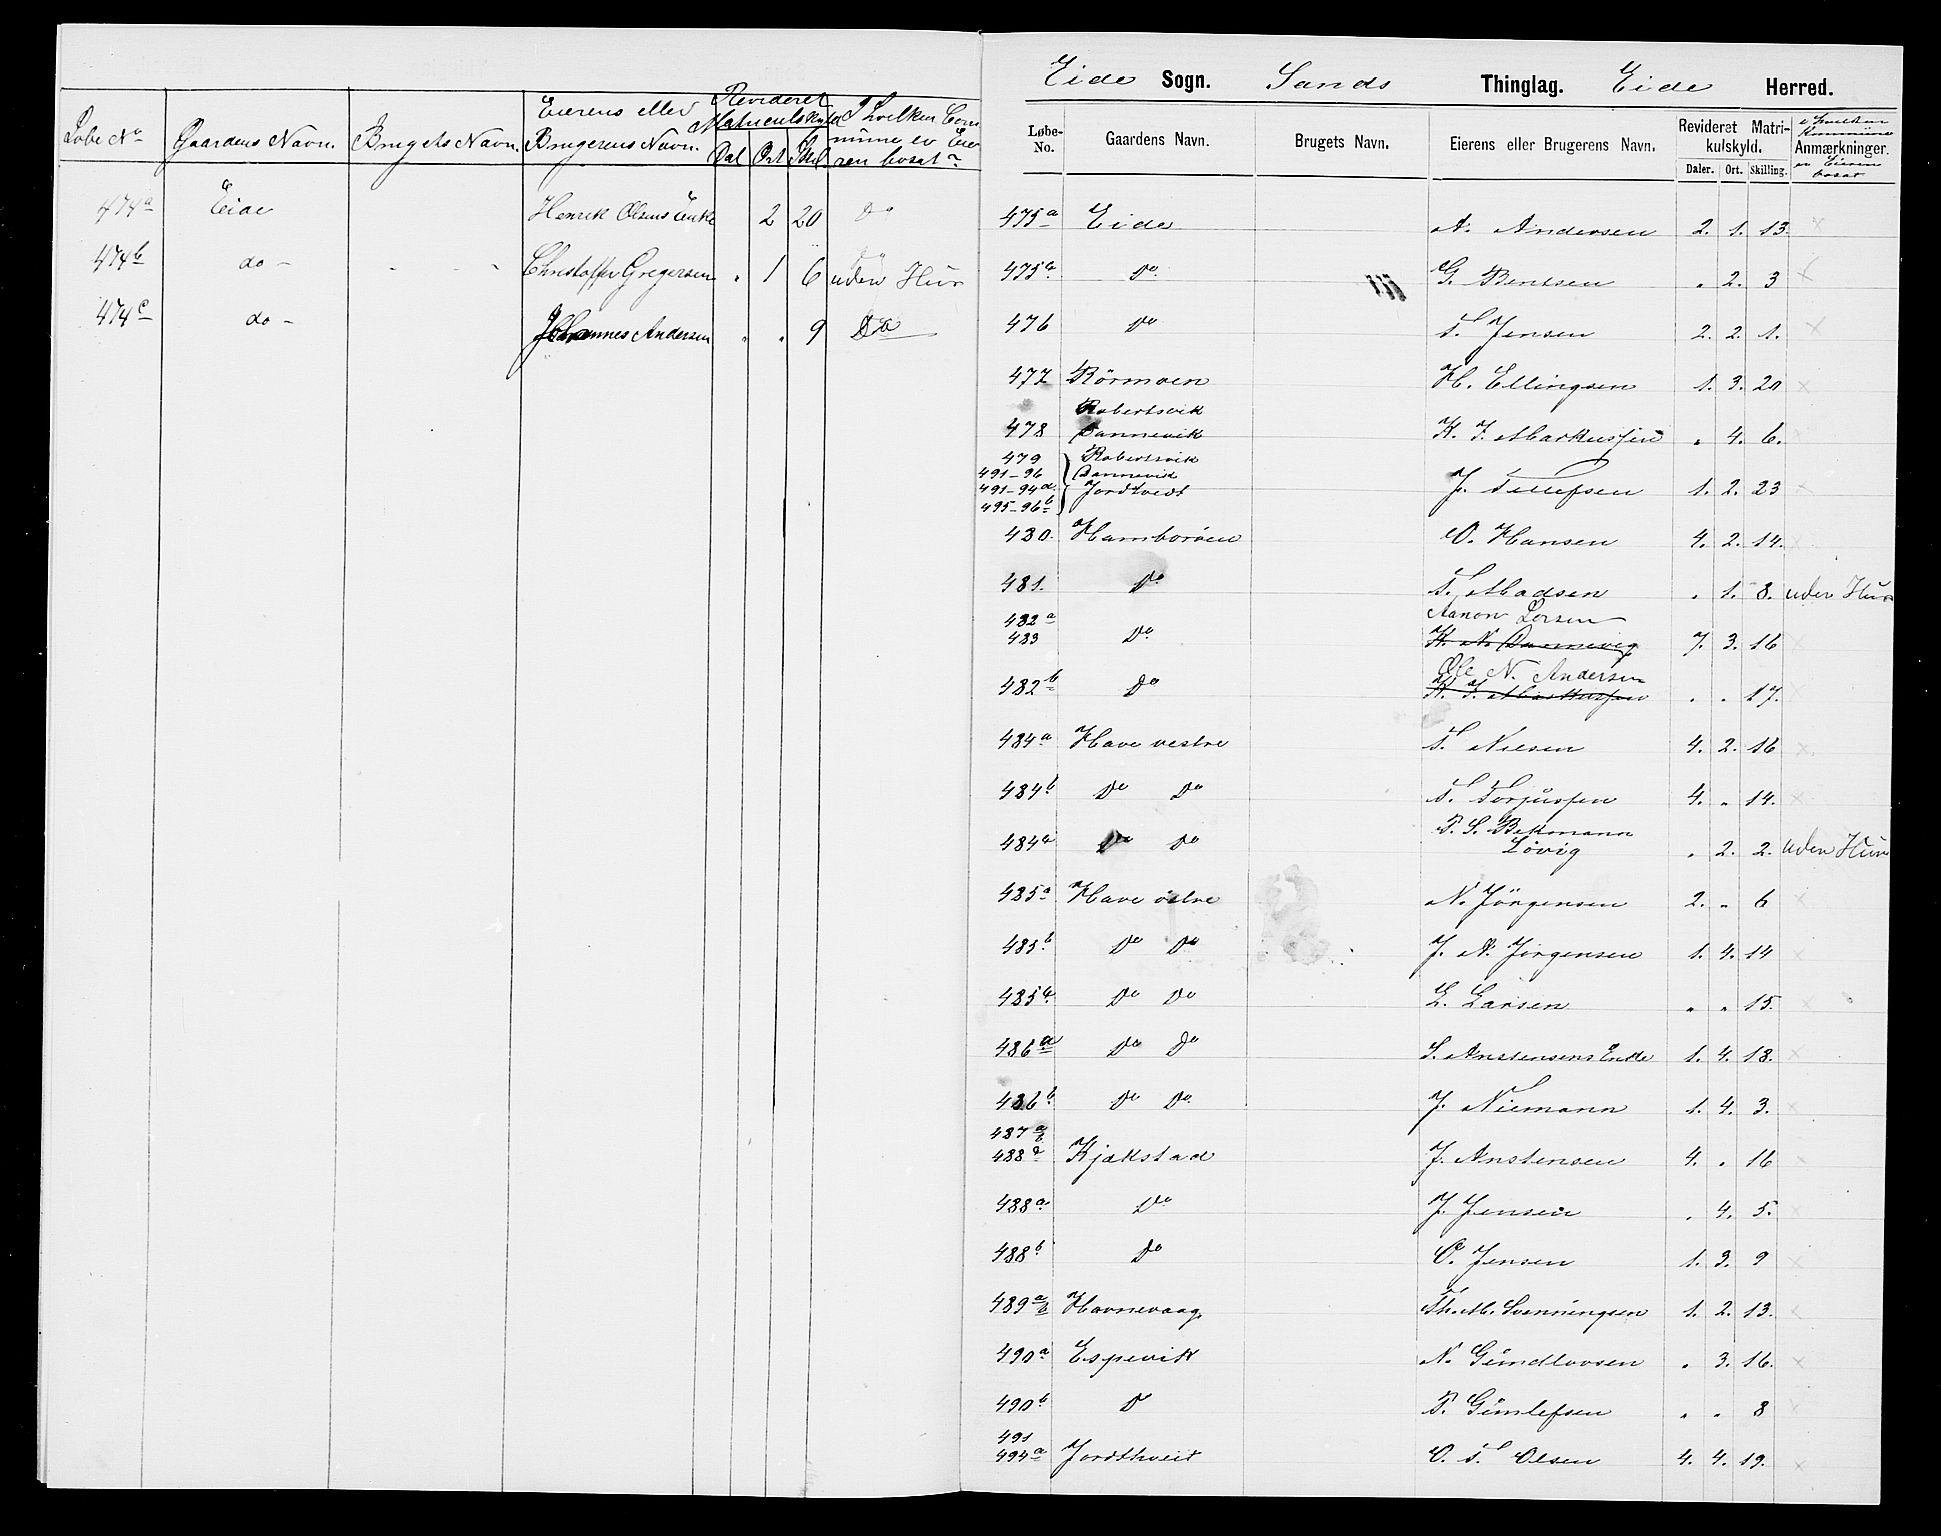 Løbe No Gaardens Navn. Brugets Navn. Eierens eller Brugerens Navn. Revideret Matriculskyld Dal Ort Skil I hvilken Commune er Eieren bosat?
474a Eide Henrik Olsens Enke 2 20 Do
474b do - - - Christoffer Gregersen " 1 6 uden Huus
474c do - Johannes Andersen " " 9 Do
Eide Sogn. Sands Thinglag. Eide Herred.
Løbe-No. Gaardens Navn. Brugets Navn. Eierens eller Brugerens Navn. Revideret Matrikulskyld. Daler. Ort. Skilling. Anmærkninger. i hvilken Kommune er Eieren bosat
475a Eide A. Andersen 2. 1. 13. x
475b Do G. Bentsen " 2. 3
476 Do T. Jensen 2. 2. 1. x
477 Rörmoen H. Ellingsen 1. 3. 20 x
Robertsvik
478 Dannevik K. T. Markussen " 4. 6. x
479 Robertsvik
491-96 Dannevik
491-94d Jordtvedt J. Tellefsen 1. 2. 23 x
495-96b
480. Hamboröen O. Hansen 4. 2. 14. x
481. Do T. Madsen " 1. 8. uden Huus
482a Aanon Larsen
483 Do K. N. Dannevig 7. 3. 16 x
Ole N. Andersen
482b Do K. T. Markussen " " 17. x
484a Have vestre T. Nilsen 4. 2. 16 x
484b Do Do T. Torjussen 4. " 14. x
P. S. Bekmann
484a Do Do Lövig " 2. 2. uden Huus
485a Have östre N. Jörgensen 2. " 6 x
485b Do Do J. N. Jörgensen 1. 4. 14
485b Do Do L. Larsen " " 15. x
486a Do Do S. Anstensens Enke 1. 4. 18. x
486b Do Do J. Niemann 1. 4. 3. x
487a/b
488d Kjækstad J. Anstensen 4. " 16 x
488a Do J. Jensen " 4. 5. x
488b Do O. Jensen 1. 3. 9 x
489a/b Havnevaag Th. M. Svenningsen 1. 2. 13. x
490a Espevik N. Gundlovsen " 3. 16. x
490b D P. Gunlefsen " " 8 x
491
494a Jordthveit O. T. Olsen 4. 4. 19. x